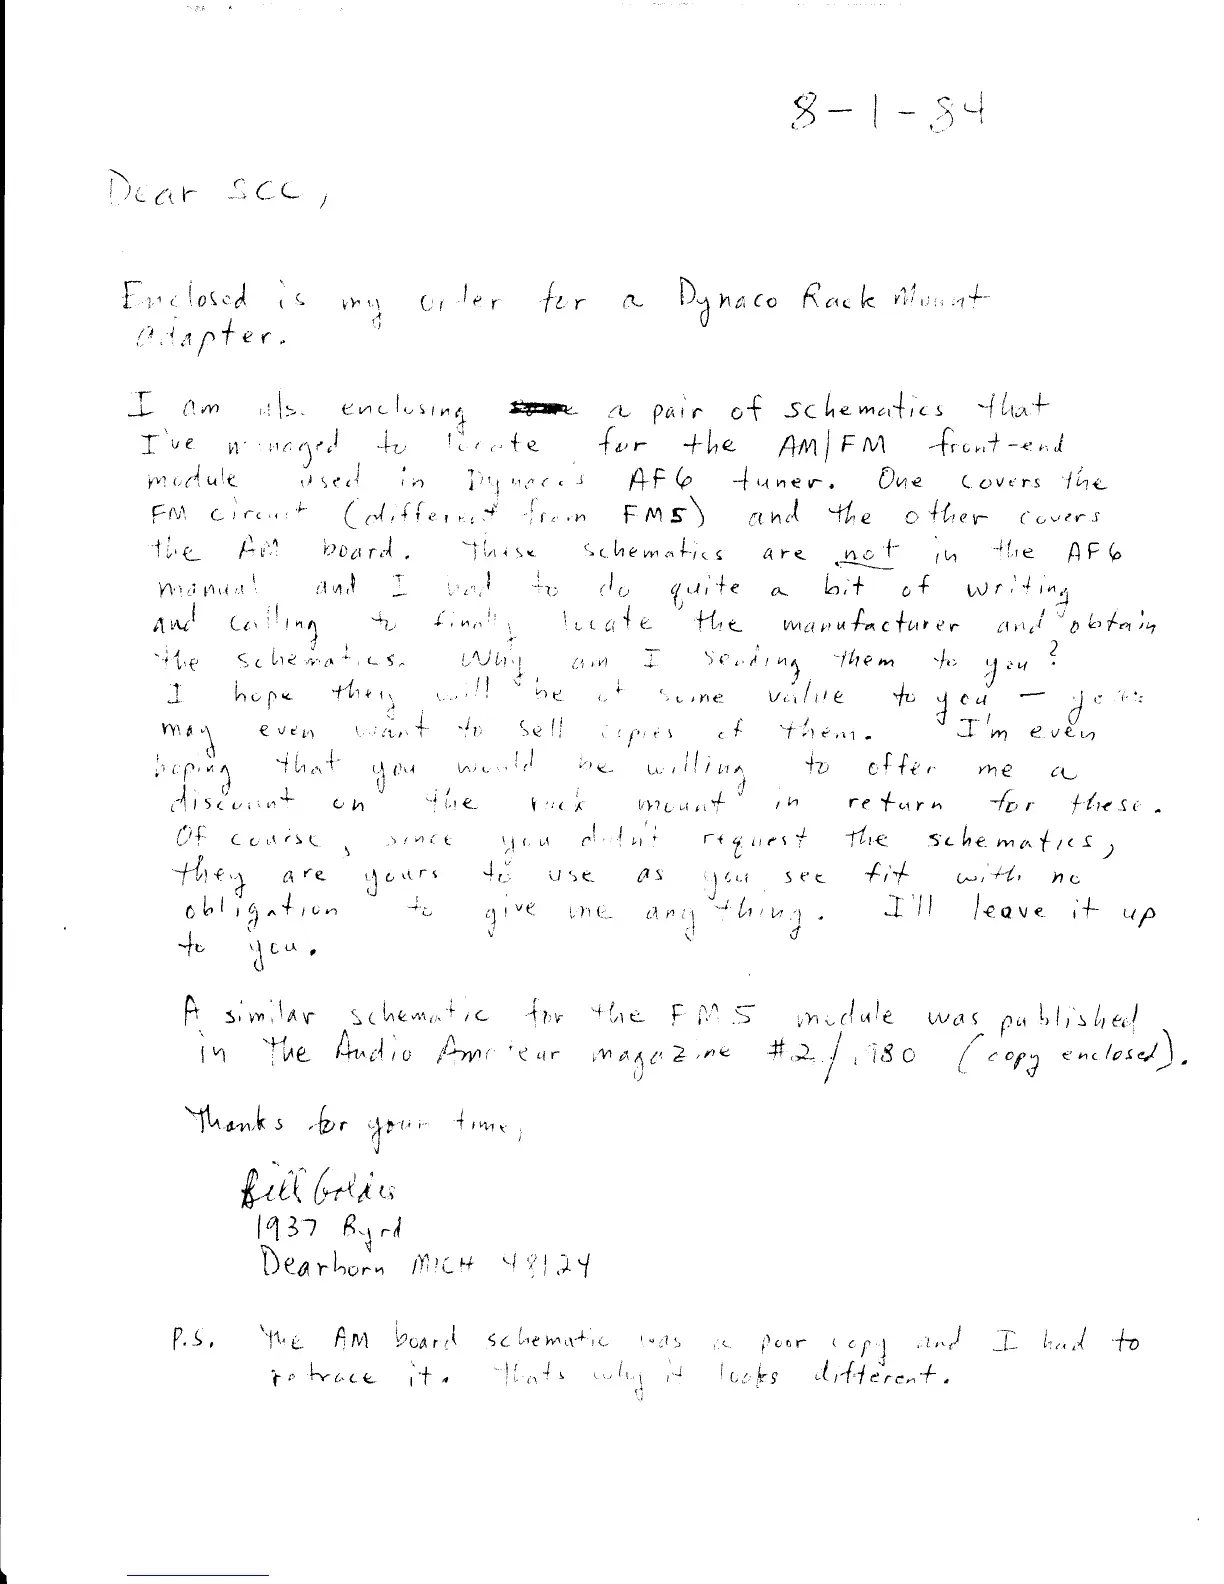 8-1-84
Dear SCC,
Enclosed is my order for a Dynaco Rack Mount
adapter.
I am also enclosing a pair of schematics that
I've managed to locate for the AM/FM front-end
module used in Dynaco's AF6 tuner. One covers the
FM circuit (different from FM5) and the other covers
the AM board. These schematics are not in the AF6
manual and I had to do quite a bit of writing
and calling to finally locate the manufacturer and obtain
the schematics. Why am I sending them to you?
I hope they will be of some value to you – you
may even want to sell copies of them. I'm even
hoping that you would be willing to offer me a
discount on the rack mount in return for these.
Of course, since you didn't request the schematics,
they are yours to use as you see fit with no
obligation to give me anything. I'll leave it up
to you.
A similar schematic for the FM5 module was published
in The Audio Amateur magazine #2/1980 (copy enclosed).
Thanks for your time,
Bill
1937 Byrd
Dearborn MICH 48124
P.S. The AM board schematic was a poor copy and I had to
retrace it. Thats why it looks different.